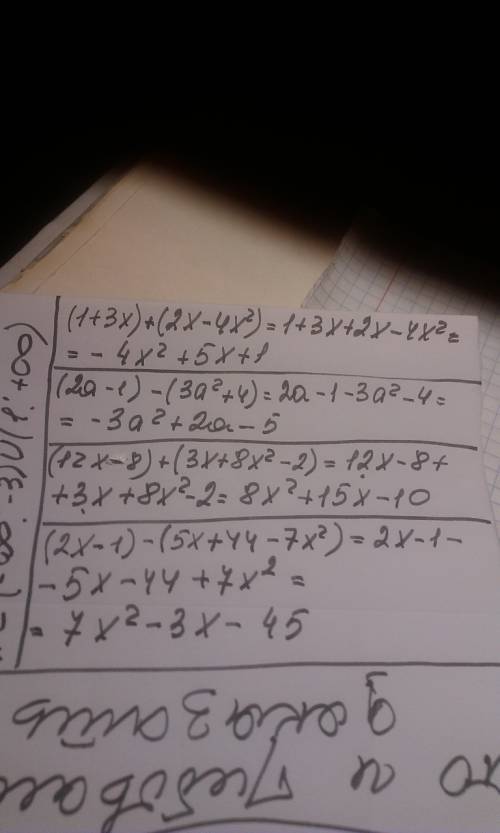 (1+3x)+(2x-4x²)=1+3x+2x-4x²=
=-4x²+5x+1
(2a-1)-(3a²+4)=2a-1-3a²-4=
=-3a²+2a-5
(12x-8)+(3x+8x²-2)=12x-8+
+3x+8x²-2=8x²+15x-10
(2x-1)-(5x+44-7x²)=2x-1-
-5x-44+7x²=
=7x²-3x-45
доказать